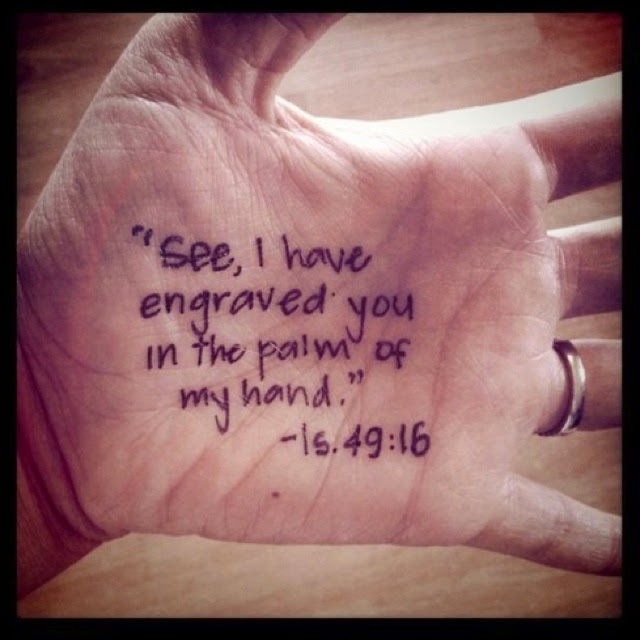 "See, I have
engraved you
in the palm of
my hand."
-Is. 49:16